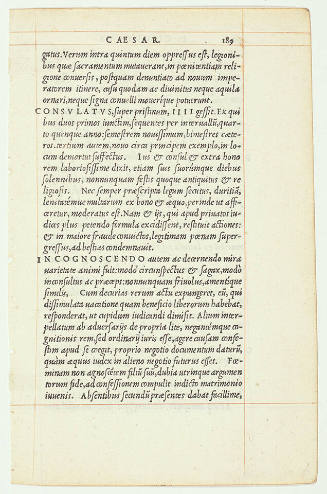 CAESAR. 189
gatus. Verum intra quintum diem oppressus est, legioni-
bus quæ sacramentum mutauerant, in pœnitentiam reli-
gione conuersis, postquam denuntiato ad nouum impe-
ratorem itinere, casu quodam ac diuinitus neque aquila
ornari, neque signa conuelli mouerique potuerunt.
CONSVLATVS, super pristinum, IIII gessit. Ex qui
bus duos primos iunctim, sequenteis per interuallū, quar-
to quenque anno: semestrem nouissimum, bimestres cæte-
ros. tertium autem, nouo circa principem exemplo, in lo-
cum demortui suffectus. Ius & consul & extra hono
rem laboriosissime dixit, etiam suis suorumque diebus
solennibus, nonnunquam festis quoque antiquitus & re
ligiosis. Nec semper præscripta legum secutus, duritiā,
lenitatémue multarum ex bono & æquo, perinde ut affi-
ceretur, moderatus est. Nam & ijs, qui apud priuatos iu-
dices plus petendo formula excidissent, restituit actiones:
& in maiore fraude conuictos, legitimam pœnam super-
gressus, ad bestias condemnauit.
IN COGNOSCENDO autem ac decernendo mira
uarietate animi fuit: modò circunspectus & sagax, modò
inconsultus ac præceps: nonnunquam friuolus, amentique
similis. Cum decurias rerum actu expungeret, eū, qui
dissimulata uacatione quam beneficio liberorum habebat,
responderat, ut cupidum iudicandi dimisit. Alium inter-
pellatum ab aduersarijs de propria lite, negantémque co-
gnitionis rem, sed ordinarij iuris esse, agere causam confe-
stim apud se coegit, proprio negotio documentum daturū,
quàm æquus iudex in alieno negotio futurus esset. Fœ-
minam non agnoscētem filiū suū, dubia utrinque argumen
torum fide, ad confessionem compulit indicto matrimonio
iuuenis. Absentibus secundū præsentes dabat facillime,